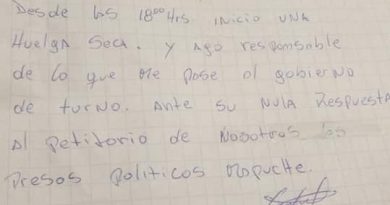 Desde las 18⁰⁰ Hrs inicio UNA
Huelga Seca. y Ago responsable
de lo que me pase al gobierno
de turno. Ante su Nula Respuesta
Al petitorio de Nosotros los
Presos politicos Mapuche.